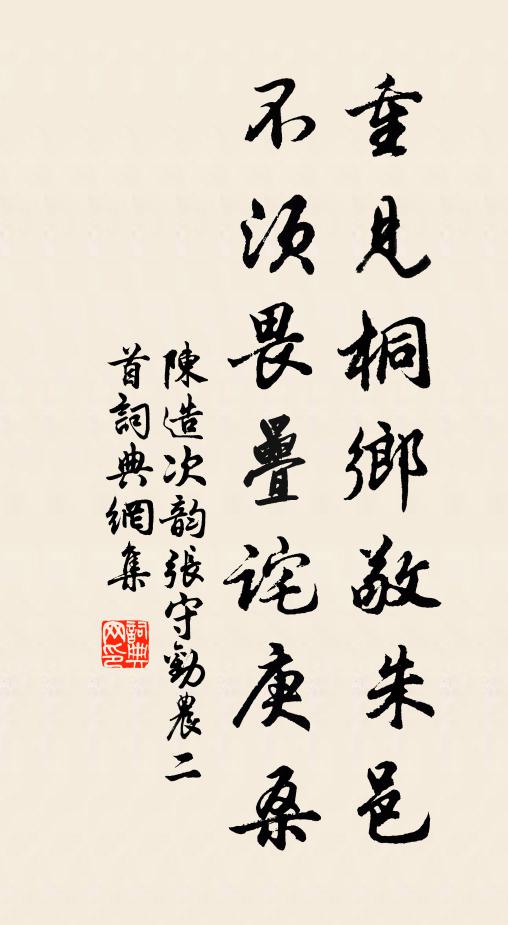 重見桐鄉敬朱邑
不須畏壘詫庚桑
陳造次韵張守勸農二
首詞典網集
詞典
网印